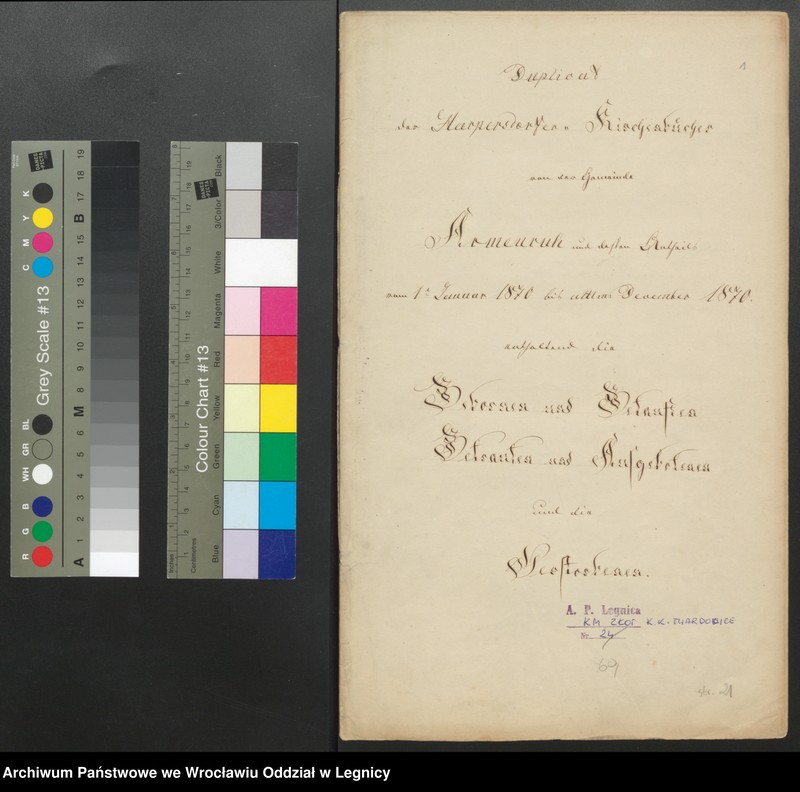 1
Duplicat
der Harpersdorfer Kirchenbücher
von der Gemeinde
Armenruh und dessen Antheil
vom 1t Januar 1870 bis ultimo December 1870.
enthaltend die
Gebornen und Getauften
Getrauten und Aufgebotenen
und die
Gestorbenen.
A. P. Legnica
KM ZŁOT K.K. TWARDOCICE
Nr 24
69
21
DANES PICTA
R G B WH GR BL C M Y K
Grey Scale #13
A 1 2 3 4 5 6 M 8 9 10 11 12 13 14 15 B 17 18 19
DANES PICTA
Colour Chart #13
Inches
Centimetres
Blue Cyan Green Yellow Red Magenta White 3/Color Black
Archiwum Państwowe we Wrocławiu Oddział w Legnicy